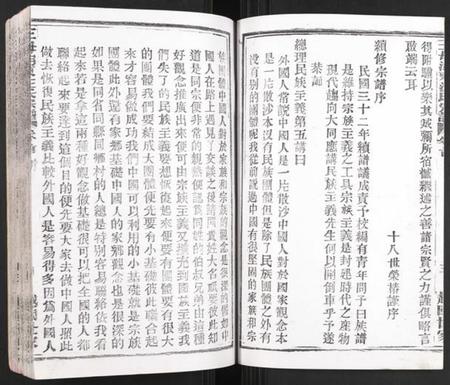 得附驥以樂其
啟端云耳
十八世榮禧謹序
續修宗譜序
民國三十二年續譜議成責予校編有青年問予曰族譜
是維持宗族主義之工具宗族主義是封建時代之產物
現代趨向大同應講民族主義先生何以開倒車乎予遂
恭誦
總理民族主義第五講曰
外國人常說中國人是一片散沙中國人對於國家觀念本
是一片散沙本沒有民族團體但是除了民族團體之外有
沒有別的團體呢我從前說過中國有很堅固的家族和宗
族團體中國人對於家族和宗族的觀念是很深的譬如中
國人在路上遇見了交談之後請問貴姓大名只要彼此知
道是同宗便非常的親熱便認為同姓的伯叔兄弟由這種
好觀念推廣出來便可由宗族主義擴充到國族主義我
們失了的民族主義要想恢復起來便要有團體要有很大
的團體我們要結成大團體便先要有小基礎彼此聯合起
來才容易做成功我們中國可以利用的小基礎就是宗族
團體此外還有家鄉基礎中國人的家鄉觀念也是很深的
如果是同省同縣同鄉村的人總是特別容易聯絡依我看
起來若是拿這兩種好觀念做基礎很可以把全國的人都
聯絡起來要達到這個目的便先要大家去做中國人照此
做去恢復民族主義比較外國人是容易得多因為外國人